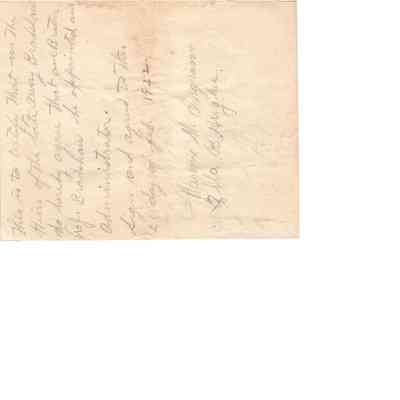 This is to certify that we the
Heirs of the late Bradshaw
do hereby agree that our Brother
Bradshaw be appointed as
Administrator.
Sign and agreed to this
day of Feb. 1922
M.
Ella B. Hughes